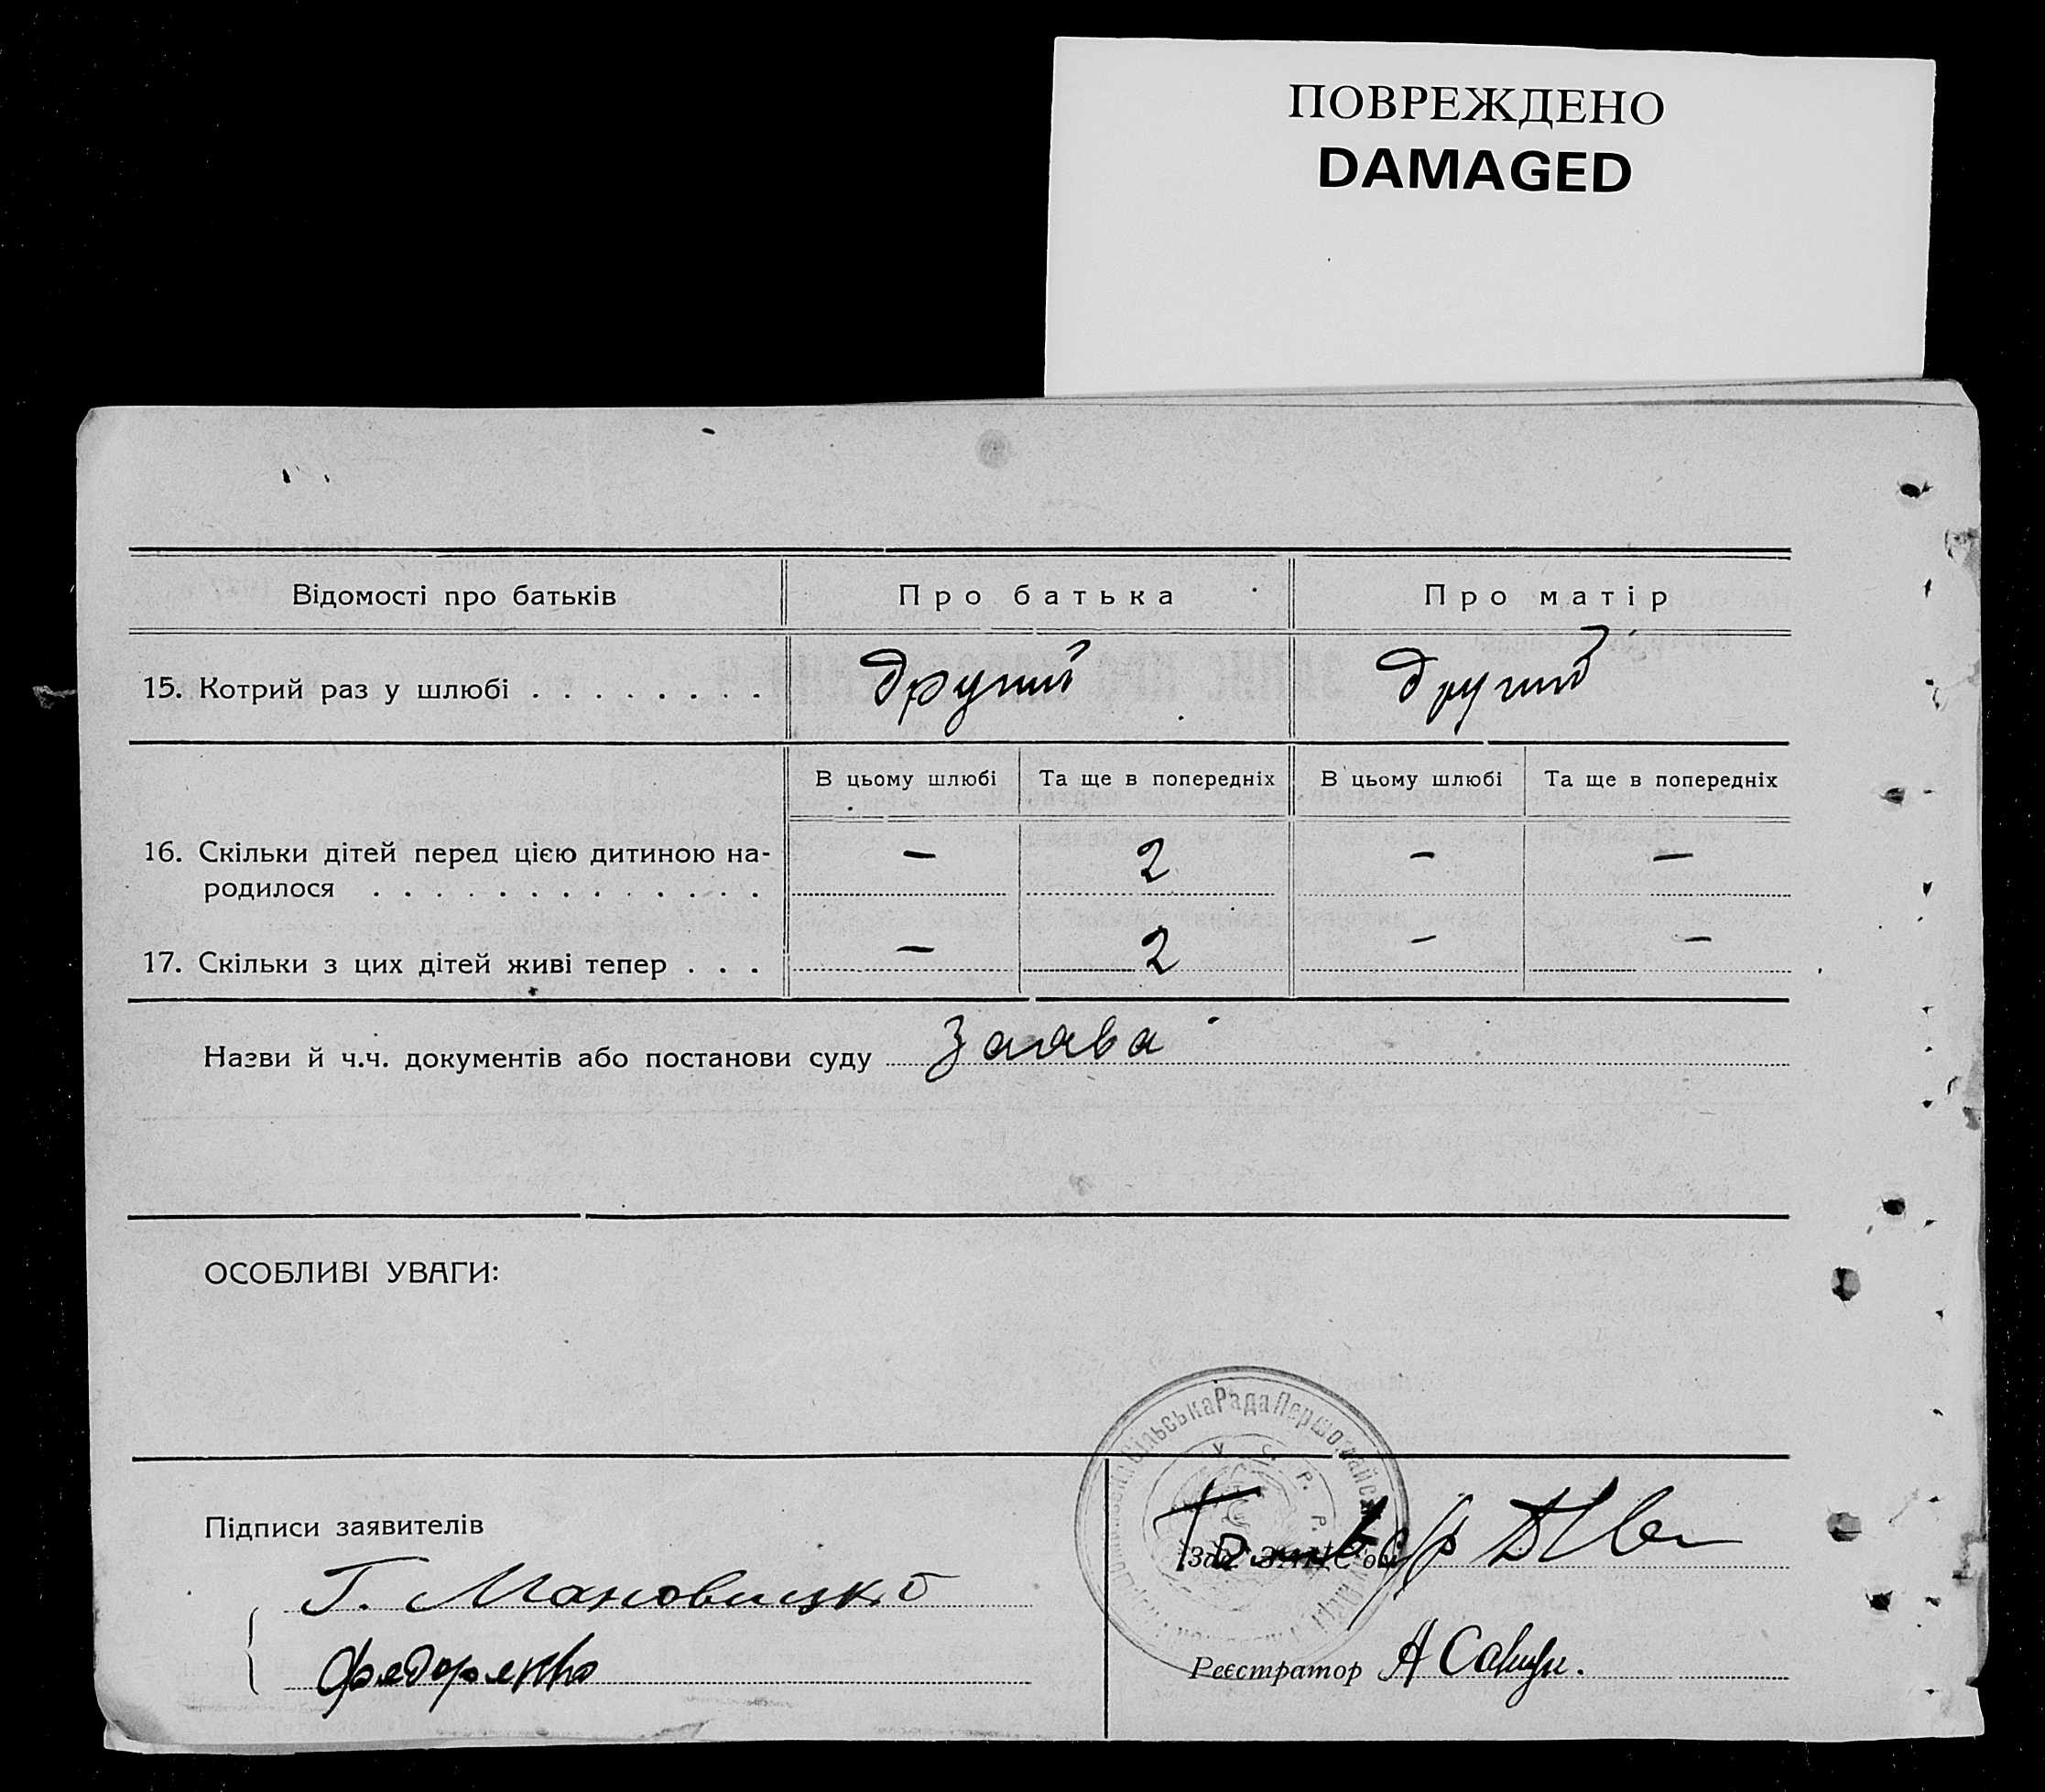 ПОВРЕЖДЕНО
DAMAGED
Відомості про батьків
Про батька
Про матір
15. Котрий раз у шлюбі . . . . . . . .
другий
другий
В цьому шлюбі
Та ще в попередніх
В цьому шлюбі
Та ще в попередніх
16. Скільки дітей перед цією дитиною на-
родилося . . . . . . . . . . . . .
— 2 — —
17. Скільки з цих дітей живі тепер . . .
— 2 — —
Назви й ч.ч. документів або постанови суду заява
ОСОБЛИВІ УВАГИ:
Сільська Рада Першомайськ
У. С. Р. Р.
Підписи заявителів
Г. Мановицко
Федоренко
Реєстратор А